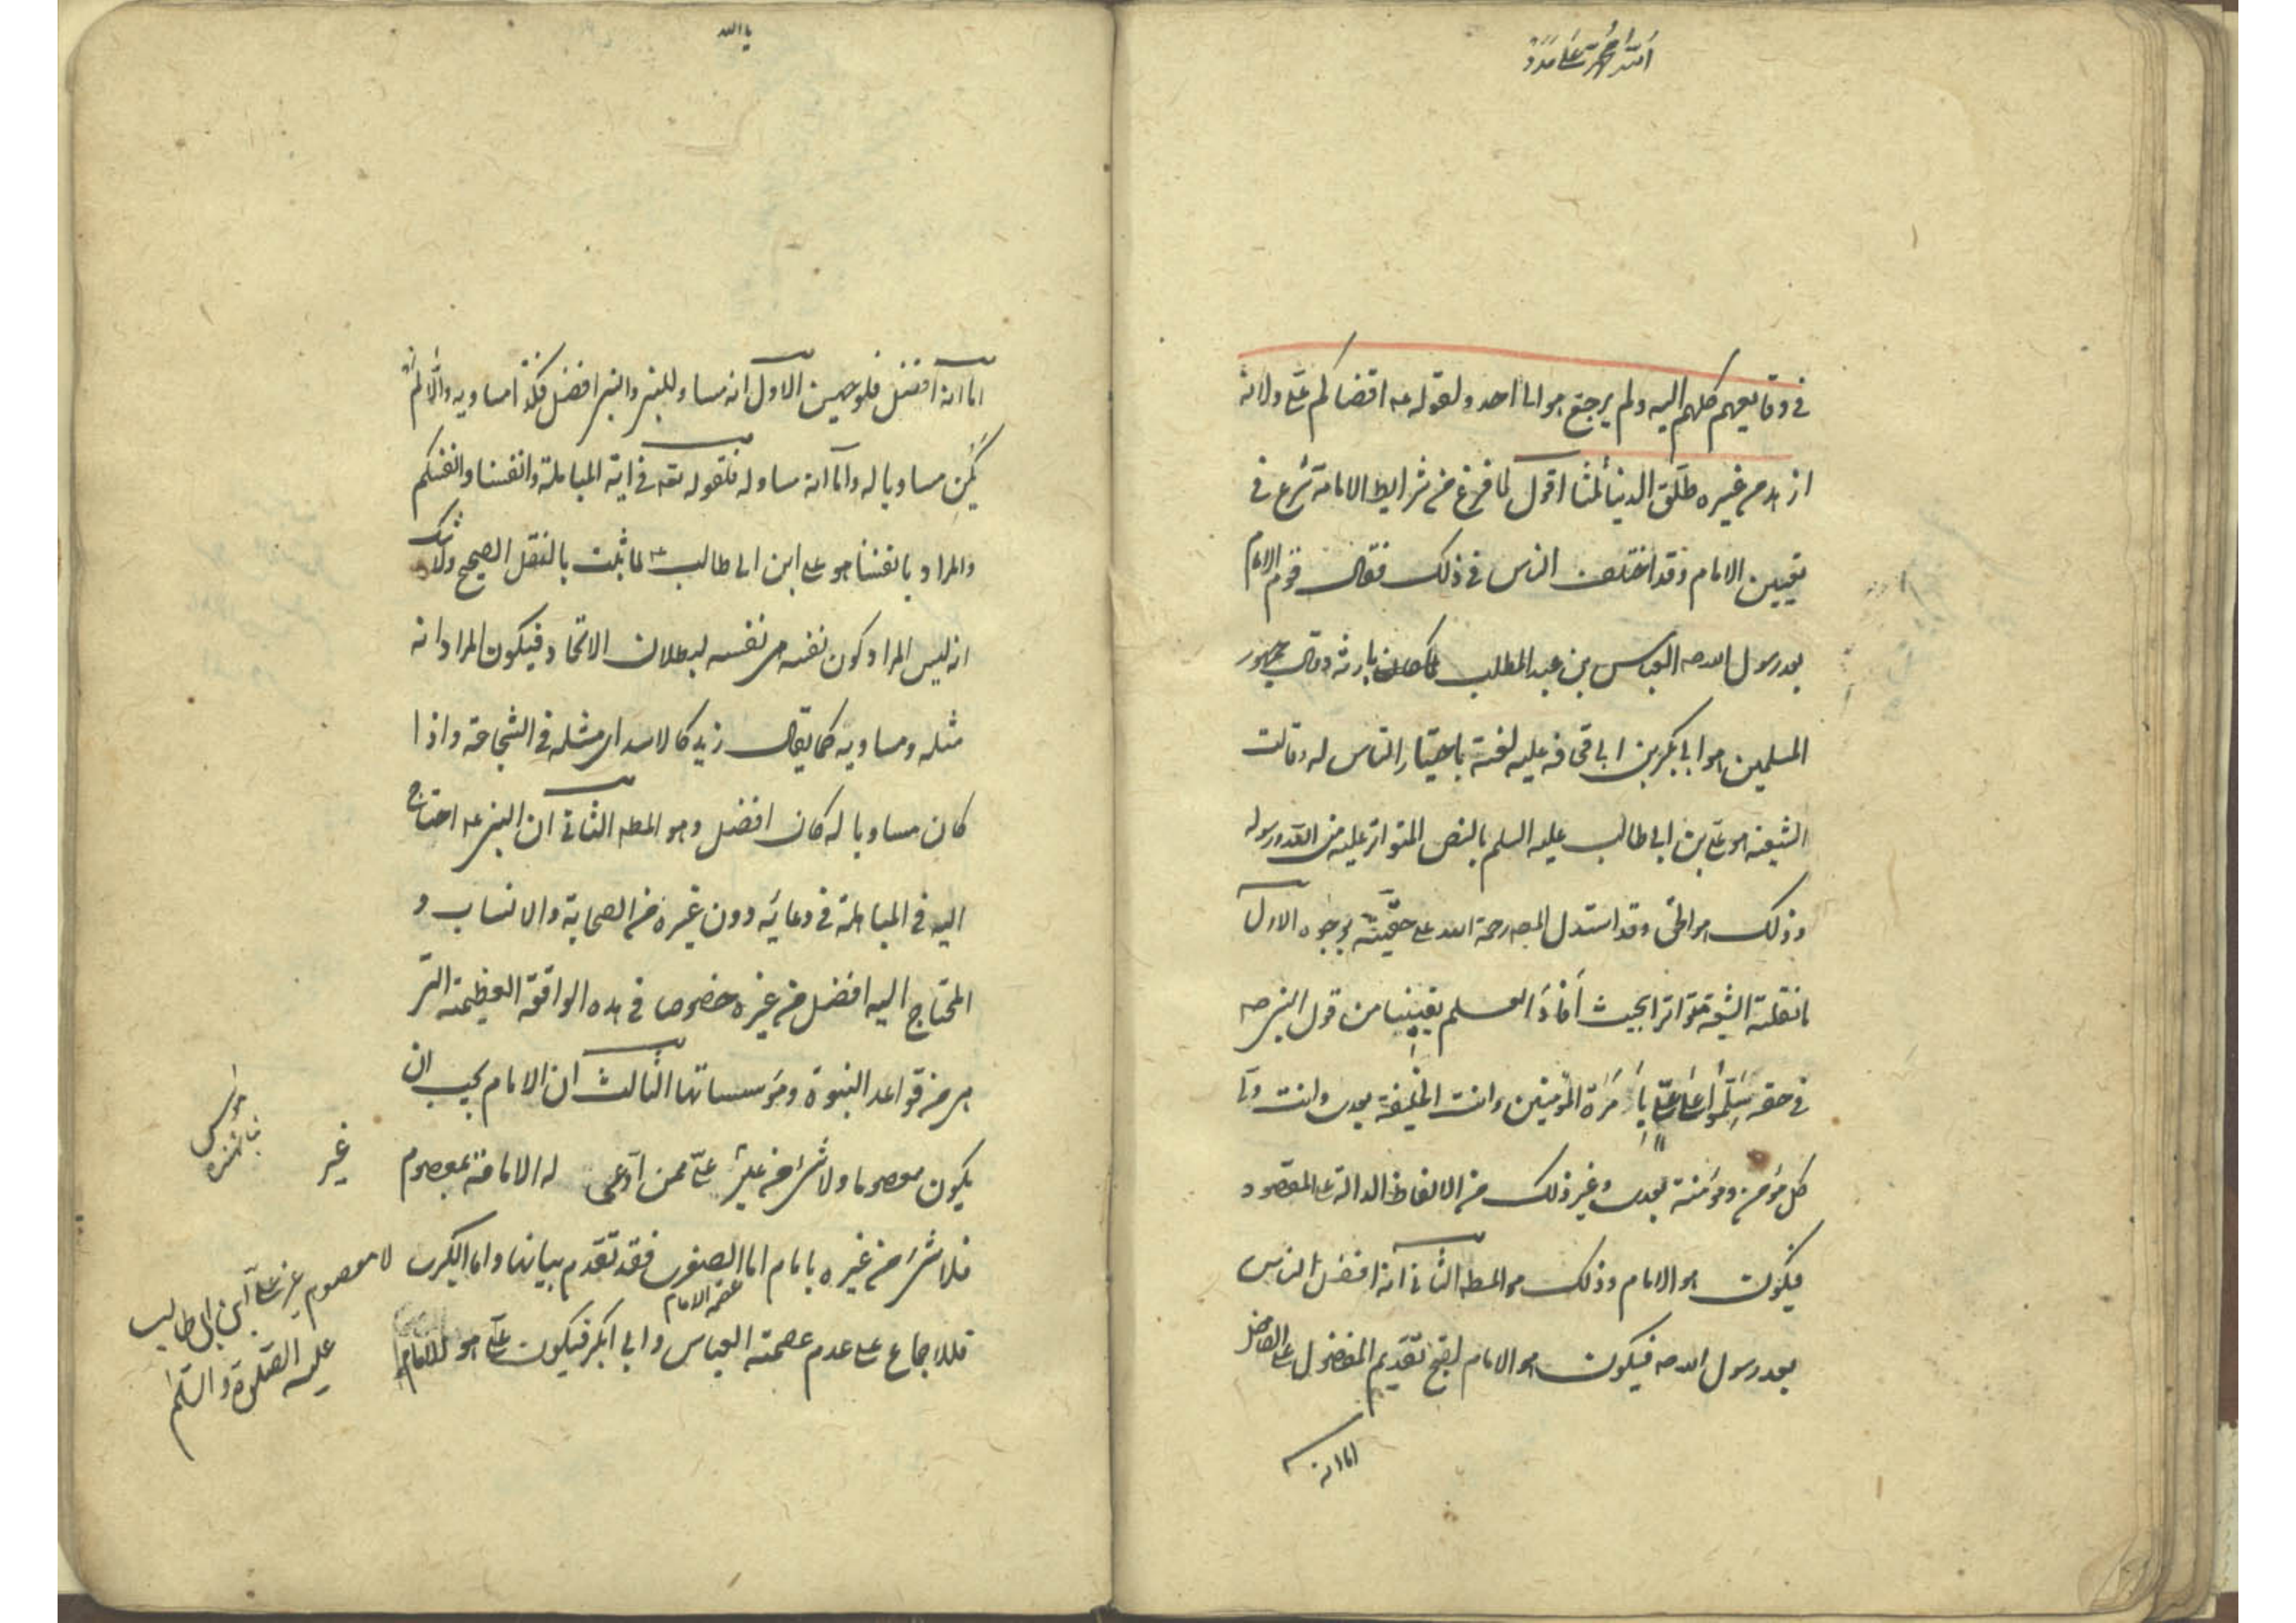 الله محمد علی مدد
في وقايعهم كلهم اليه ولم يرجع هو الى احد ولقوله عه اقضاكم علي ولانه
ازهد من غيره طلق الدنيا ثلثا اقول لما فرغ من شرايط الامامة شرع في
تعيين الامام وقد اختلف الناس في ذلك فقال قوم الامام
بعد رسول الله صه العباس بن عبد المطلب بارثه وقال جمهور
المسلمين هو ابي بكر بن ابي قحافه باختيار الناس له وقالت
الشيعة هو علي بن ابي طالب عليه السلم بالنص المتواتر عليه من الله ورسوله
وذلك هو الحق وقد استدل المصه رحمة الله على حقيته بوجوه الاول
ما نقلته الشيعة متواترا بحيث أفاد العلم يقينا من قول النبي صه
في حقه سلموا على علي بامرة المؤمنين وانت الخليفة بعدي وانت ولي
كل مؤمن ومؤمنة بعدي وغير ذلك من الالفاظ الدالة على المقصود
فيكون هو الامام وذلك هو المطه الثاني انه افضل الناس
بعد رسول الله صه فيكون هو الامام لقبح تقديم المفضول على الفاضل
اما انه
يا الله
اما انه افضل فلوجهين الاول انه مساو للنبي والنبي افضل فكذا مساويه والا لم
يكن مساويا له واما انه مساو له فلقوله تعه في اية المباهلة وانفسنا وانفسكم
والمراد بانفسنا هو علي ابن ابي طالب عه لما ثبت بالنقل الصحيح ولا شك
انه ليس المراد كون نفسه هي نفسه لبطلان الاتحاد فيكون المراد انه
مثله ومساويه كما يقال زيد كالاسد اي مثله في الشجاعة واذا
كان مساويا له كان افضل وهو المطه الثاني ان النبي عه احتاج
اليه في المباهلة في دعائه دون غيره من الصحابة والانساب و
المحتاج اليه افضل من غيره خصوصا في هذه الواقعة العظيمة التي
هي من قواعد النبوة ومؤسساتها الثالث ان الامام يجب ان
يكون معصوما ولا شئ من غير علي ممن ادعى له الامامة بمعصوم
غير
فلا شئ من غيره بامام اما الصغرى فقد تقدم بيانها واما الكبرى
عصمة الامام
فللاجماع على عدم عصمة العباس وابي بكر فيكون علي هو الامام
لا معصوم غير علي ابن ابي طالب
عليه الصلوة والسلم